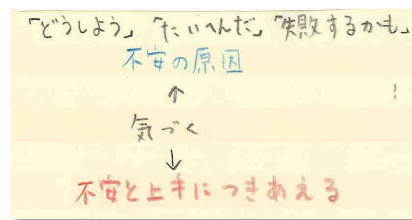 「どうしよう」「たいへんだ」「失敗するかも」
不安の原因
↑
気づく
↓
不安と上手につきあえる